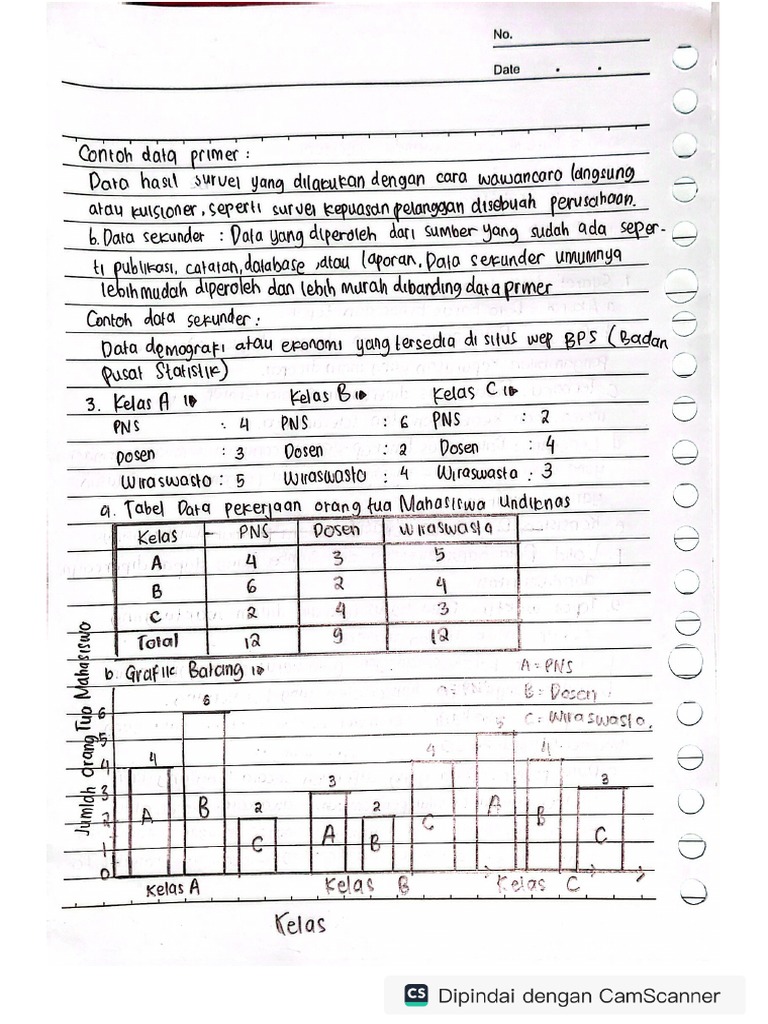 No.
Date
Contoh data primer :
Data hasil survei yang dilakukan dengan cara wawancara langsung
atau kuisioner, seperti survei kepuasan pelanggan disebuah perusahaan.
b. Data sekunder : Data yang diperoleh dari sumber yang sudah ada seper-
ti publikasi, catatan, database, atau laporan. Data sekunder umumnya
lebih mudah diperoleh dan lebih murah dibanding data primer
Contoh data sekunder :
Data demografi atau ekonomi yang tersedia di situs wep BPS (Badan
Pusat Statistik)
3. Kelas A Kelas B Kelas C
PNS : 4 PNS : 6 PNS : 2
Dosen : 3 Dosen : 2 Dosen : 4
Wiraswasta : 5 Wiraswasta : 4 Wiraswasta : 3
a. Tabel Data pekerjaan orang tua Mahasiswa Undiknas
Kelas PNS Dosen Wiraswasta
A 4 3 5
B 6 2 4
C 2 4 3
Total 12 9 12
b. Grafik Batang
A = PNS
B = Dosen
C = Wiraswasta.
Jumlah orang Tua Mahasiswa
6
5
4
3
2
1
0
4 6 2 3 2 4 5 4 3
A B C A B C A B C
Kelas A Kelas B Kelas C
Kelas
CS Dipindai dengan CamScanner